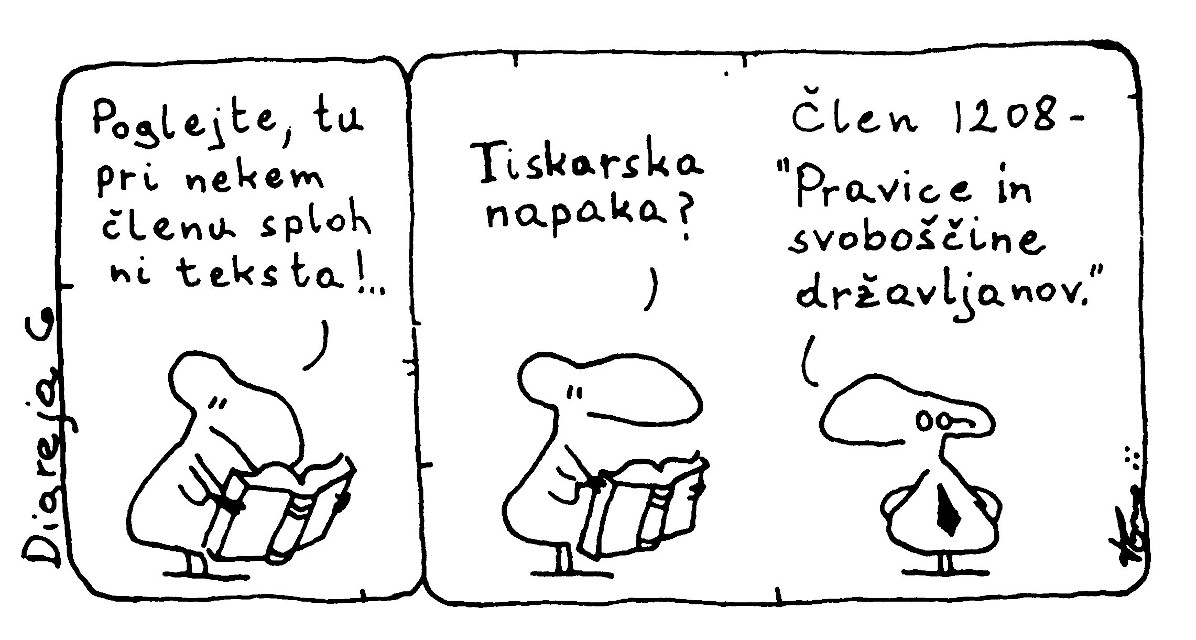 Poglejte, tu
pri nekem
členu sploh
ni teksta!..
Tiskarska
napaka?
Člen 1208-
"Pravice in
svoboščine
državljanov."
Diareja 6